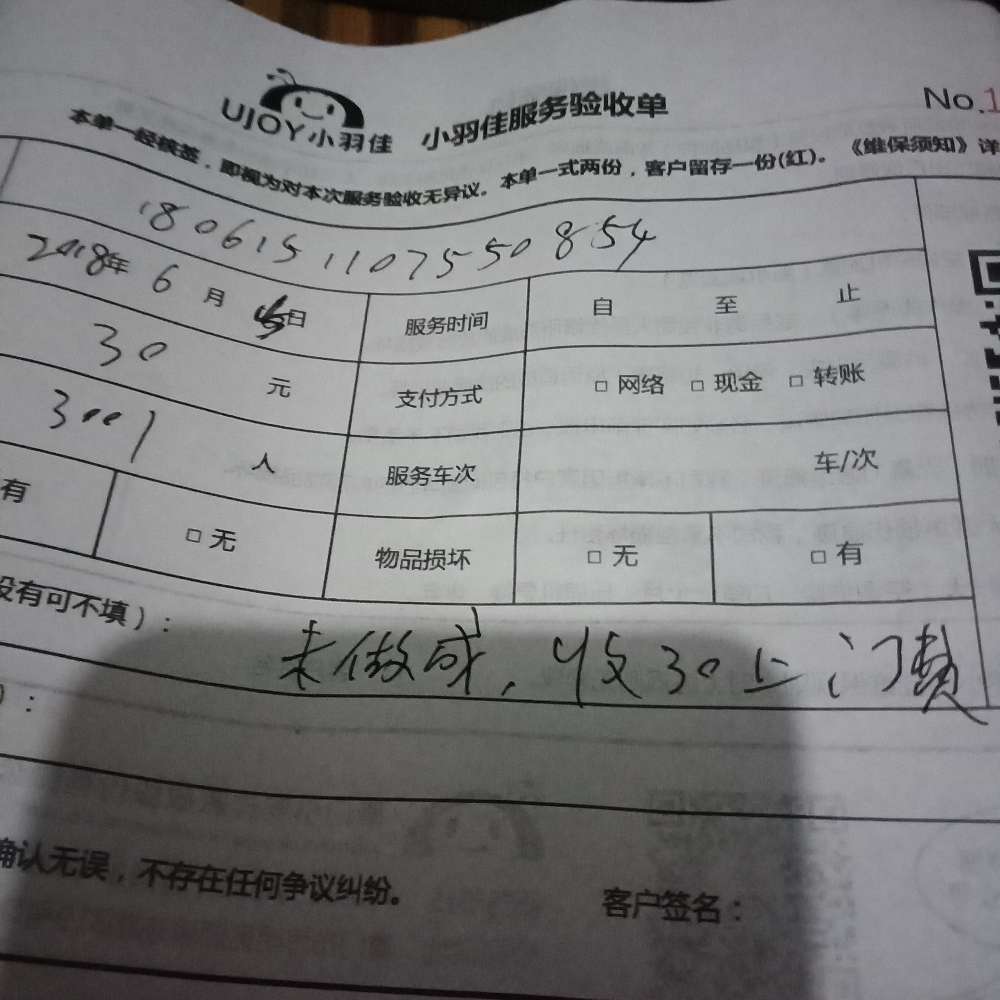 UJOY小羽佳 小羽佳服务验收单 No.1
本单一经核签，即视为对本次服务验收无异议。本单一式两份，客户留存一份(红)。《维保须知》详
1806151107550854
2018年 6 月 15日 服务时间 自 至 止
30 元 支付方式 □ 网络 □ 现金 □ 转账
3001 人 服务车次 车/次
有 □ 无 物品损坏 □ 无 □ 有
没有可不填）：
未做成，收30上门费
）：
确认无误，不存在任何争议纠纷。 客户签名：